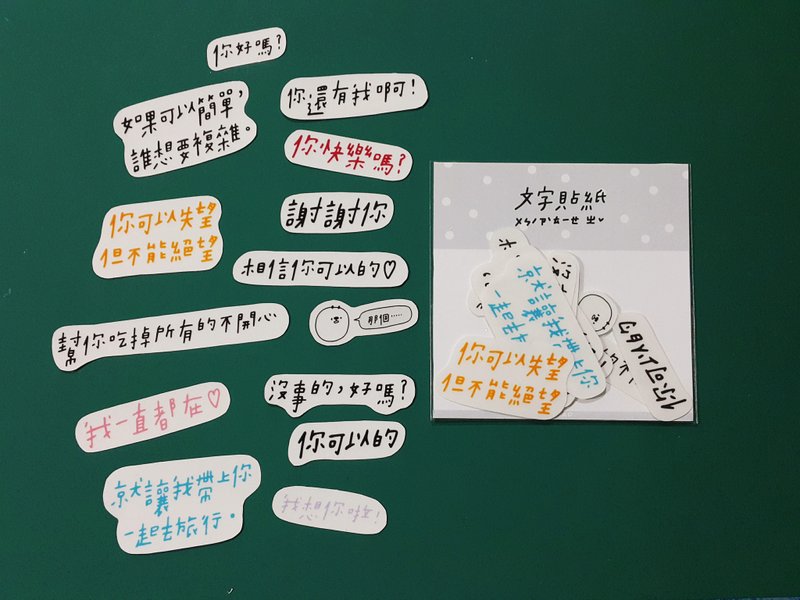 你好嗎?
如果可以簡單,
誰想要複雜。
你還有我啊!
你快樂嗎?
你可以失望
但不能絕望
謝謝你
相信你可以的♡
幫你吃掉所有的不開心
那個……
我一直都在♡
沒事的,好嗎?
你可以的
就讓我帶上你
一起去旅行。
我想你啦!
文字貼紙
就讓我帶上你
一起去
你可以失望
但不能絕望